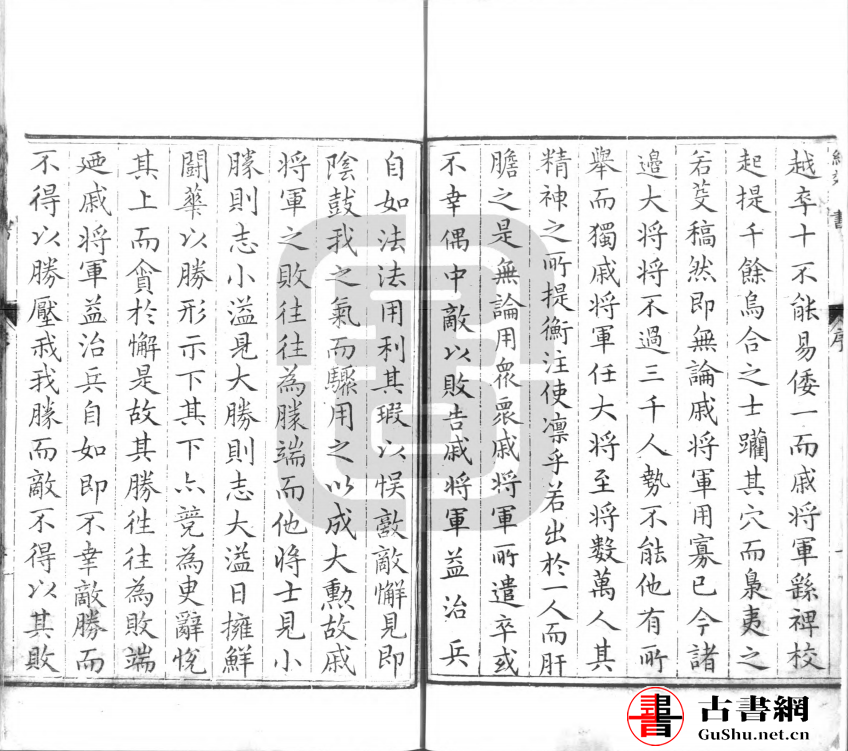 越卒十不能易倭一而戚将軍繇裨校
起提千餘烏合之士躪其穴而梟夷之
若芟稿然即無論戚将軍用寡已今諸
邉大将将不過三千人勢不能他有所
舉而獨戚将軍任大将至将數萬人其
精神之所提衡注使凛乎若出於一人而肝
膽之是無論用衆衆戚将軍所遣卒或
不幸偶中敵以敗告戚将軍益治兵
自如法法用利其瑕以悮敵敵懈見即
陰鼓我之氣而驟用之以成大勲故戚
将軍之敗往往為勝端而他将士見小
勝則志小溢見大勝則志大溢日擁鮮
鬪蘂以勝形示下其下亦競為叓辭悅
其上而貪於懈是故其勝往往為敗端
廼戚将軍益治兵自如即不幸敵勝而
不得以勝壓我我勝而敵不得以其敗
序
古書網
GuShu.net.cn